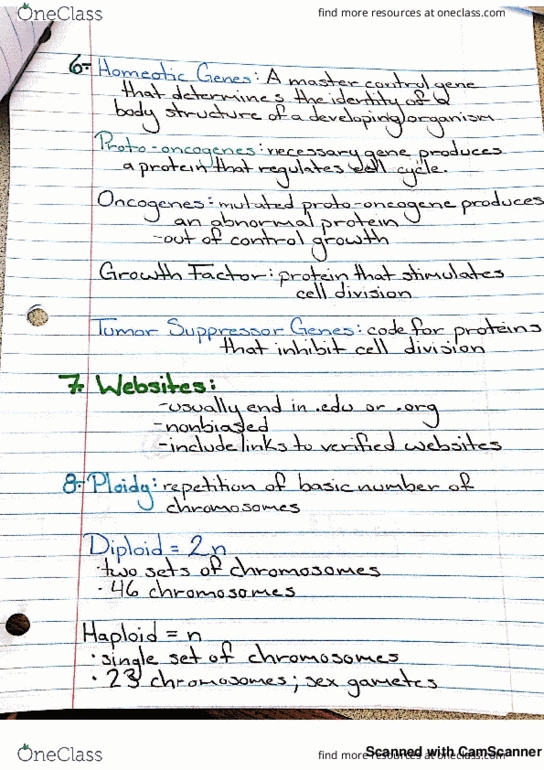 OneClass
find more resources at oneclass.com
6- Homeotic Genes: A master control gene
that determines the identity of a
body structure of a developing organism
Proto-oncogenes: necessary gene produces
a protein that regulates cell cycle.
Oncogenes: mutated proto-oncogene produces
an abnormal protein
-out of control growth
Growth Factor: protein that stimulates
cell division
Tumor Suppressor Genes: code for proteins
that inhibit cell division
7- Websites:
-usually end in .edu or .org
-nonbiased
-include links to verified websites
8- Ploidy: repetition of basic number of
chromosomes
Diploid = 2n
·two sets of chromosomes
·46 chromosomes
Haploid = n
·single set of chromosomes
·23 chromosomes; sex gametes
OneClass
find more resources at oneclass.com
Scanned with CamScanner